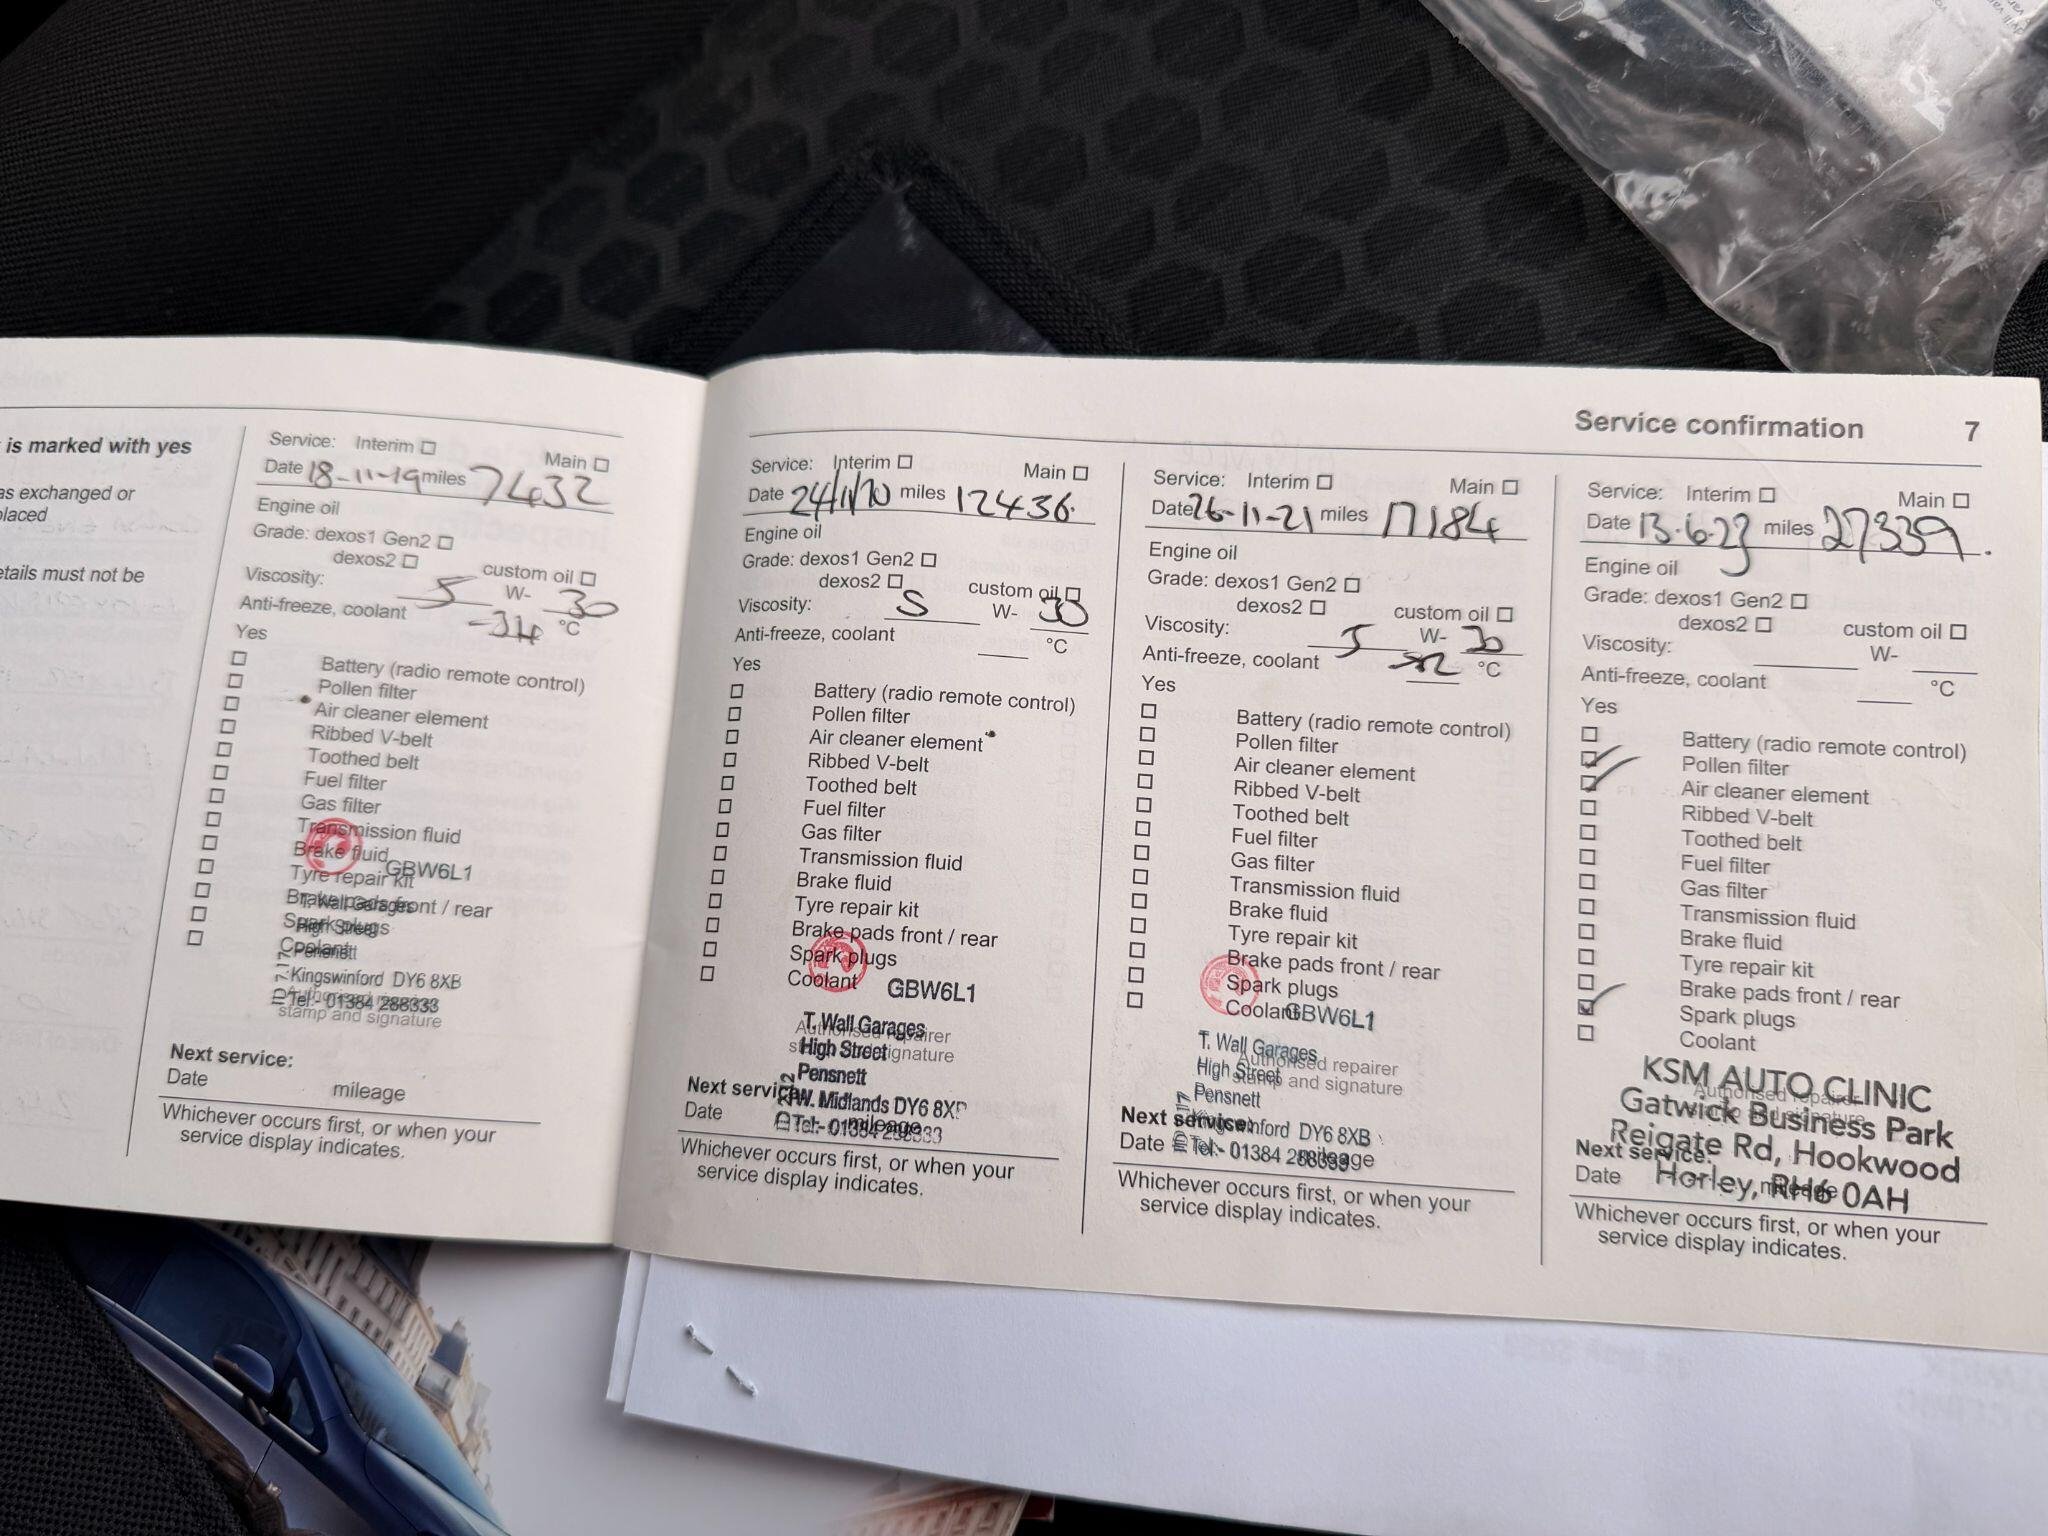 is marked with yes
as exchanged or
placed
etails must not be
Service: Interim Main
Date 18-11-19 miles 7432
Engine oil
Grade: dexos1 Gen2
dexos2
custom oil
Viscosity: 5 W- 30
Anti-freeze, coolant -34 °C
Yes
Battery (radio remote control)
Pollen filter
Air cleaner element
Ribbed V-belt
Toothed belt
Fuel filter
Gas filter
Transmission fluid
Brake fluid
GBW6L1
Tyre repair kit
Brake pads front / rear
T. Wall Garages
Spark plugs
High Street
Coolant
Pensnett
Kingswinford DY6 8XB
Authorised repairer
Tel:- 01384 288333
stamp and signature
Next service:
Date mileage
Whichever occurs first, or when your
service display indicates.
Service confirmation 7
Service: Interim Main
Date 24/11/20 miles 12436.
Engine oil
Grade: dexos1 Gen2
dexos2
custom oil
Viscosity: 5 W- 30
Anti-freeze, coolant °C
Yes
Battery (radio remote control)
Pollen filter
Air cleaner element
Ribbed V-belt
Toothed belt
Fuel filter
Gas filter
Transmission fluid
Brake fluid
Tyre repair kit
Brake pads front / rear
Spark plugs
Coolant
GBW6L1
T. Wall Garages
Authorised repairer
High Street
stamp and signature
Pensnett
Next service:
W. Midlands DY6 8X
Date mileage
Tel:- 01384 288333
Whichever occurs first, or when your
service display indicates.
Service: Interim Main
Date 26-11-21 miles 17184
Engine oil
Grade: dexos1 Gen2
dexos2
custom oil
Viscosity: 5 W- 30
Anti-freeze, coolant °C
Yes
Battery (radio remote control)
Pollen filter
Air cleaner element
Ribbed V-belt
Toothed belt
Fuel filter
Gas filter
Transmission fluid
Brake fluid
Tyre repair kit
Brake pads front / rear
Spark plugs
Coolant
GBW6L1
T. Wall Garages
Authorised repairer
High Street
stamp and signature
Pensnett
Next service:
Kingswinford DY6 8XB
Date mileage
Tel:- 01384 288333
Whichever occurs first, or when your
service display indicates.
Service: Interim Main
Date 13.6.23 miles 27339.
Engine oil
Grade: dexos1 Gen2
dexos2
custom oil
Viscosity: W-
Anti-freeze, coolant °C
Yes
Battery (radio remote control)
Pollen filter
Air cleaner element
Ribbed V-belt
Toothed belt
Fuel filter
Gas filter
Transmission fluid
Brake fluid
Tyre repair kit
Brake pads front / rear
Spark plugs
Coolant
KSM AUTO CLINIC
Authorised repairer
Gatwick Business Park
stamp and signature
Reigate Rd, Hookwood
Next service:
Horley, RH6 0AH
Date mileage
Whichever occurs first, or when your
service display indicates.